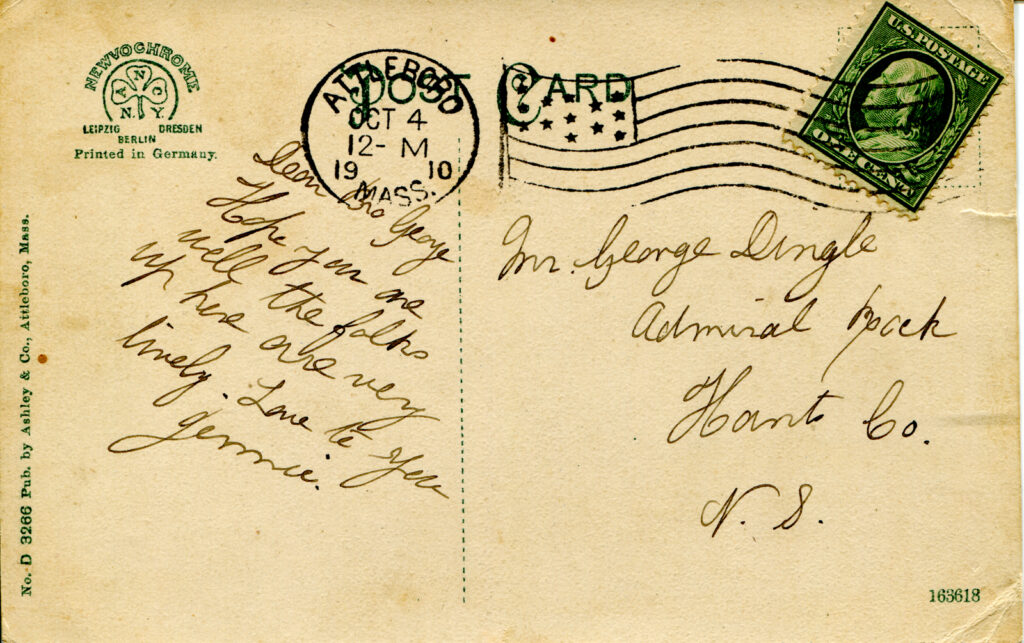 NEWVOCHROME
N
A C
N.Y.
LEIPZIG DRESDEN
BERLIN
Printed in Germany.
POST CARD
ATTLEBORO
OCT 4
12- M
19 10
MASS.
U.S. POSTAGE
ONE CENT
Dear Bro George
Hope you are
well the folks
up here are very
lively. Love to you
Jennie.
Mr. George Dingle
Admiral Rock
Hants Co.
N. S.
No. D 3266 Pub. by Ashley & Co., Attleboro, Mass.
163618